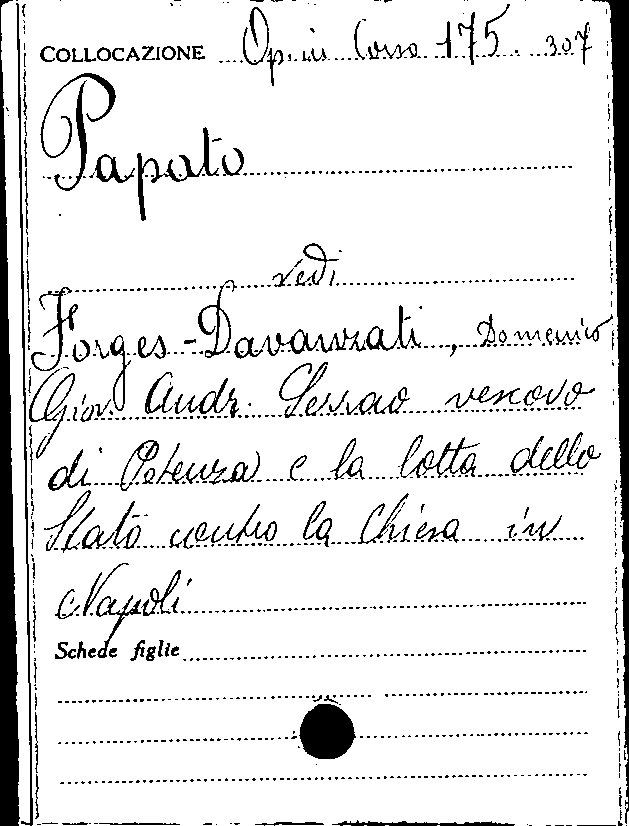 COLLOCAZIONE Op. in Corso 175. 307
Papato
vedi
Forges-Davanzati, Domenico
Giov. Andr. Serrao vescovo
di Potenza e la lotta dello
Stato contro la Chiesa in
Napoli
Schede figlie